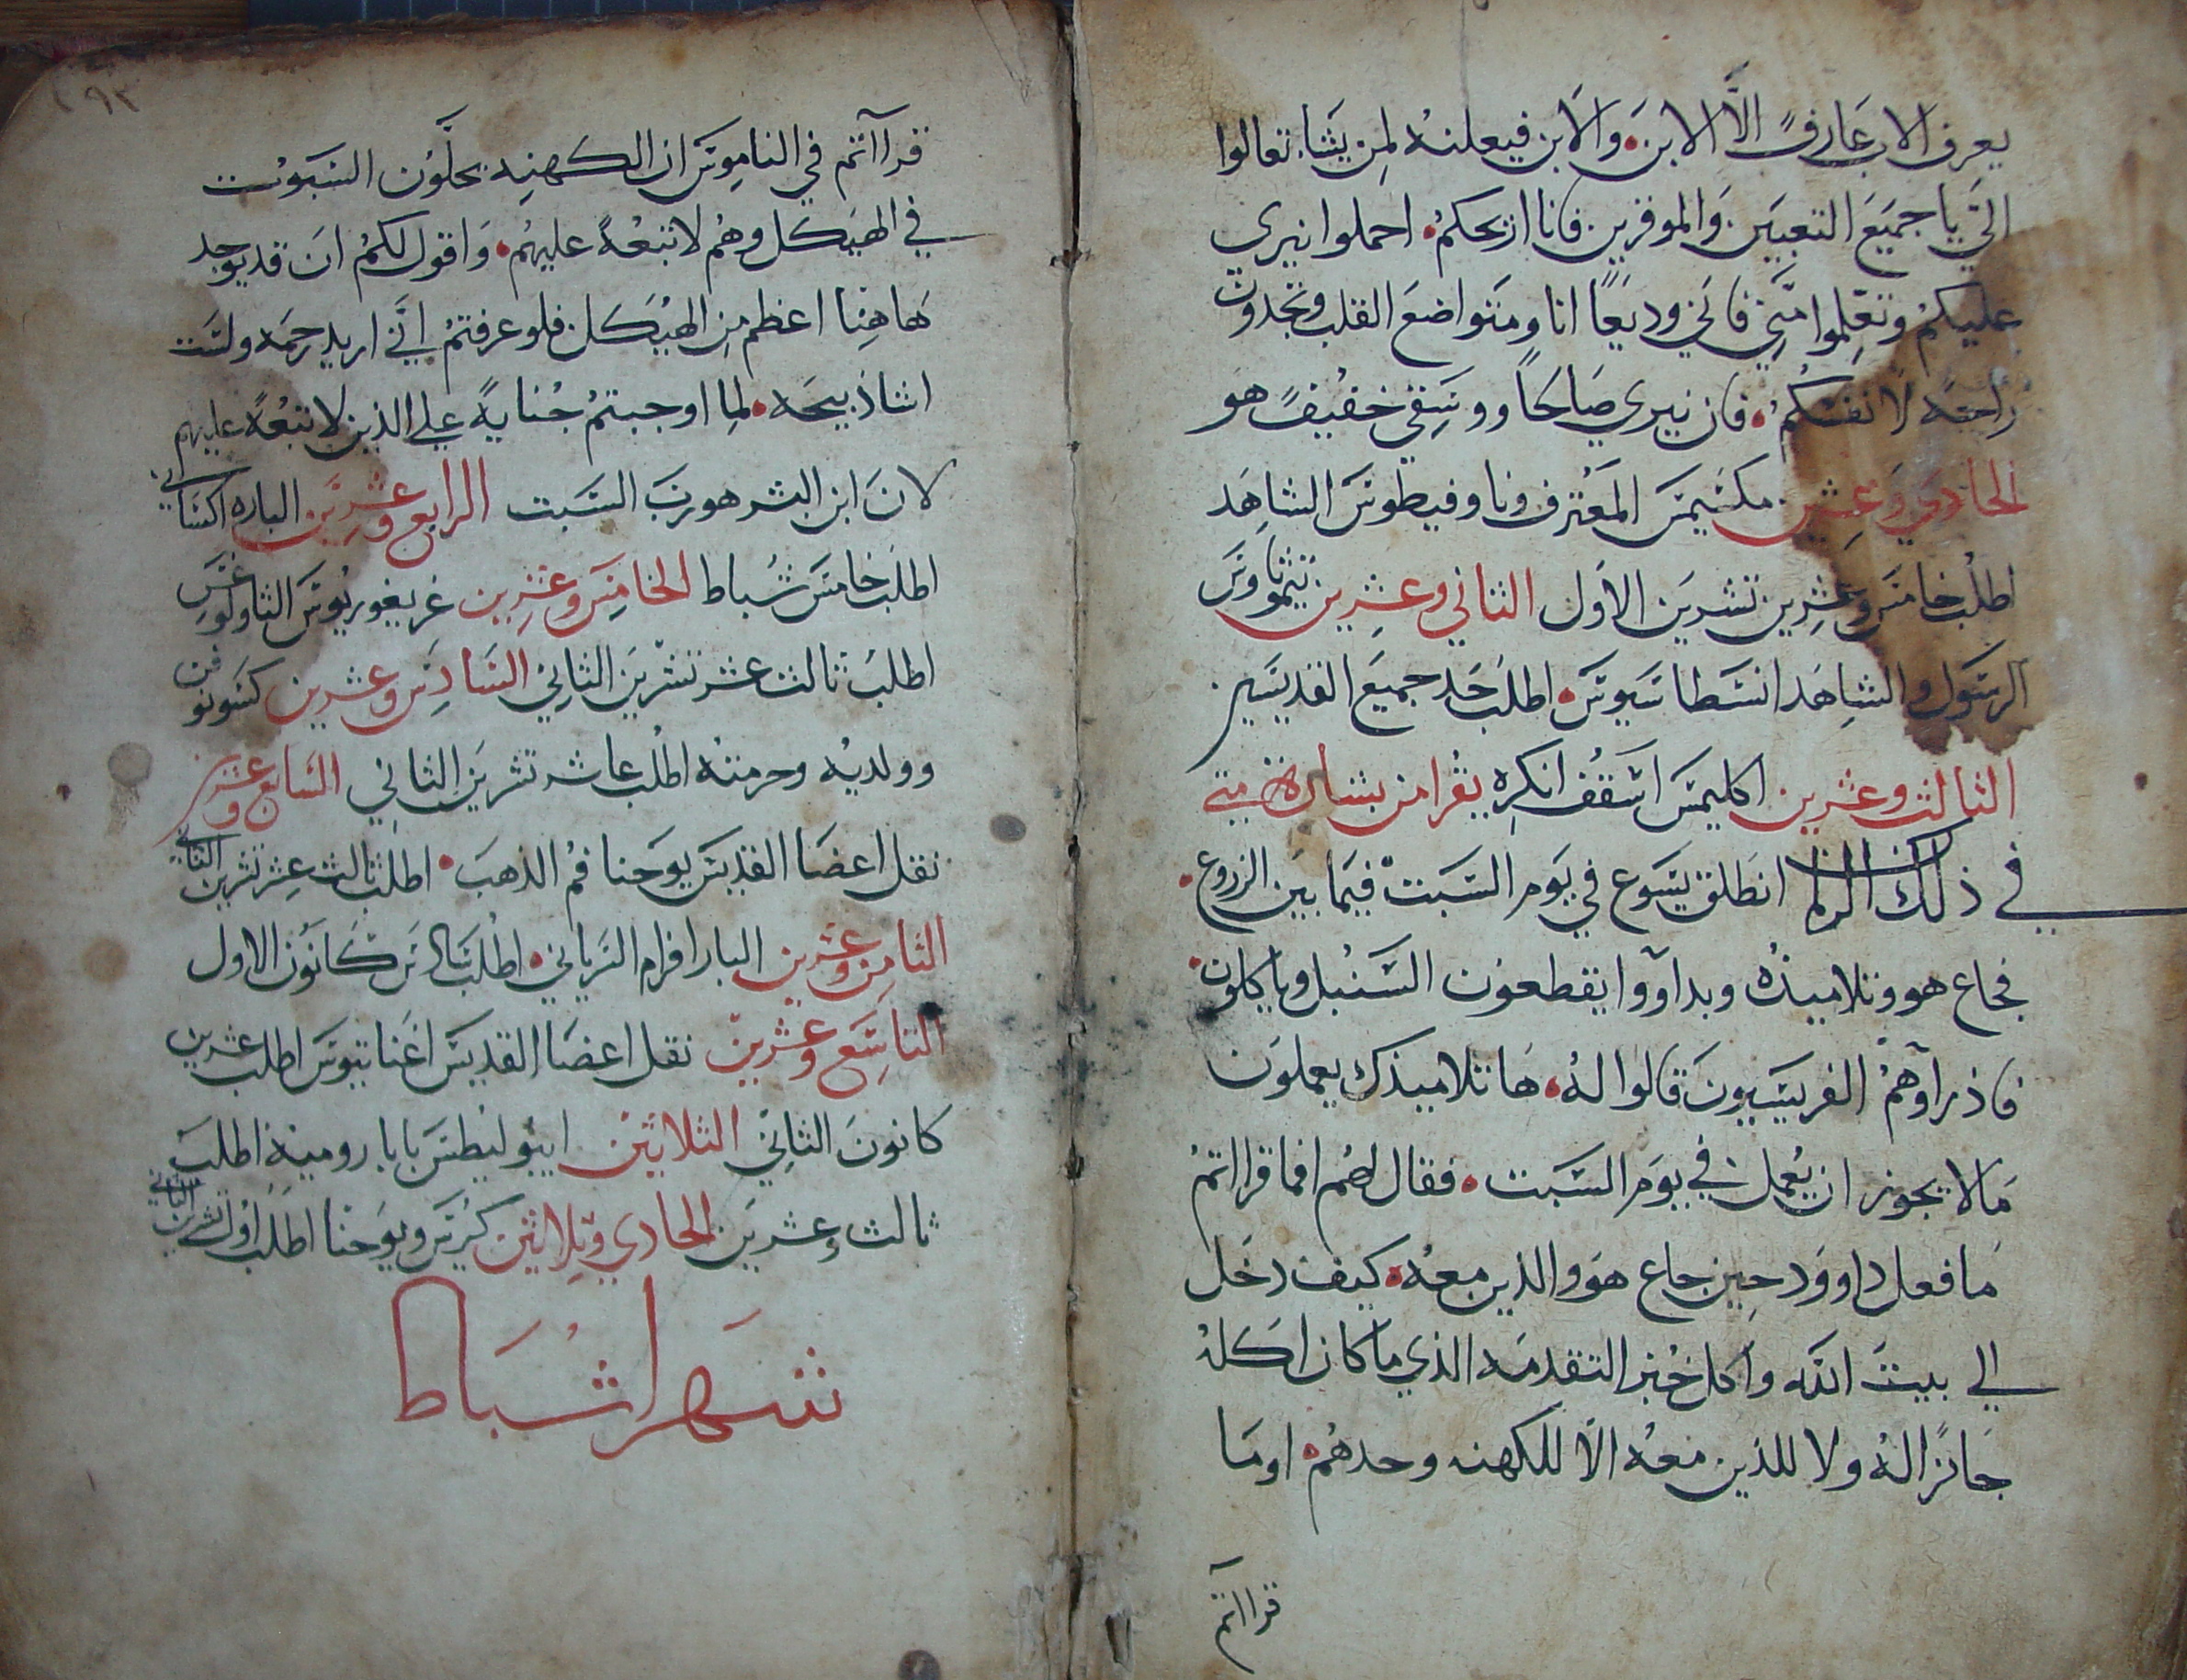 يعرف الاب عَارفٌ الَّا الابن۰ والابن فيعلنهُ لمن يشا۰ تعالوا
اليّ يا جميع التعبين والموقرين فانا اريحكم۰ احملوا نيري
عليكم وتعلموا منّي فاني وديعًا انا ومتواضع القلب وتجدون
راحه لانفسكم۰ فان نيري صَالحًا ووسقي خفيفٌ هو
الحادي وعشرين مكسيمس المعترف وناوفيطوس الشاهد
اطلب خامس وعشرين تشرين الاول الثاني وعشرين تيموتاوس
الرسول والشاهد انسطاسيوس۰ اطلب حد جميع القديسين
الثالث وعشرين اكليمس اسقف انكره يقرا من بشارة متي
في ذلك الزمان انطلق يسوع في يوم السبت فيما بين الزروع۰
فجاع هو وتلاميذه وبداووا يقطعون السنبل وياكلون۰
فاذ راوهم الفريسيون قالوا له۰ ها تلاميذك يعملون
ما لا يجوز ان يعمل في يوم السبت۰ فقال لهم افما قراتم
ما فعل داوود حين جاع هو والذين معه۰ كيف دخل
الي بيت الله واكل خبز التقدمه الذي ما كان اكله
جائزًا له ولا للذين معه الا للكهنه وحدهم۰ اوما
قرااتم
١٩٣
قرااتم في الناموس ان الكهنه يحلّون السبوت
في الهيكل وهم لا تبعهً عليهم۰ واقول لكم ان قد يوجد
هاهنا اعظم من الهيكل فلو عرفتم انّي اريد رحمه ولست
اشا ذبيحه۰ لما اوجبتم جنايةً علي الذين لا تبعهً عليهم
لان ابن البشر هو رب السبت الرابع وعشرين الباره اكساني
اطلب خامس شباط الخامس وعشرين غريغوريوس الثاولوغس
اطلب ثالث عشر تشرين الثاني السادس وعشرين كسونوفن
وولديه وحرمته اطلب عاشر تشرين الثاني السابع وعشرين
نقل اعضا القديس يوحنا فم الذهب۰ اطلب ثالث عشر تشرين الثاني
الثامن وعشرين البار افرام السرياني۰ اطلب سادس كانون الاول
التاسع وعشرين نقل اعضا القديس اغناتيوس اطلب عشرين
كانون الثاني الثلاثين ايبوليطس بابا روميه اطلب
ثالث وعشرين الحادي وثلاثين كرس ويوحنا اطلب اول تشرين الثاني
شهر اشباط